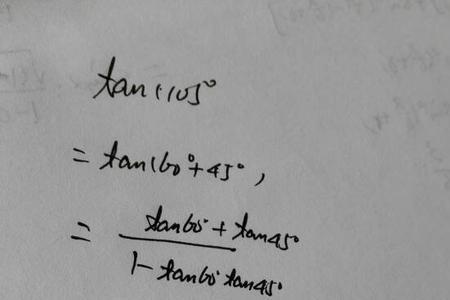 tan(105°
= tan(60°+45°)
= tan60°+tan45° / 1-tan60°tan45°